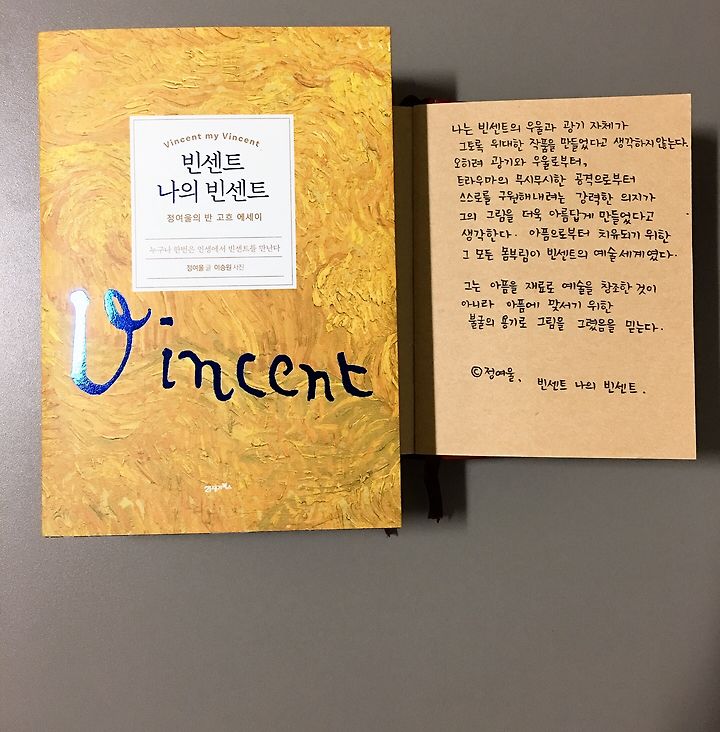 Vincent my Vincent
빈센트
나의 빈센트
정여울의 반 고흐 에세이
누구나 한번은 인생에서 빈센트를 만난다
정여울 글 이승원 사진
Vincent
21세기북스
나는 빈센트의 우울과 광기 자체가
그토록 위대한 작품을 만들었다고 생각하지 않는다.
오히려 광기와 우울로부터,
트라우마의 무시무시한 공격으로부터
스스로를 구원해내려는 강력한 의지가
그의 그림을 더욱 아름답게 만들었다고
생각한다. 아픔으로부터 치유되기 위한
그 모든 몸부림이 빈센트의 예술세계였다.
그는 아픔을 재료로 예술을 창조한 것이
아니라 아픔에 맞서기 위한
불굴의 용기로 그림을 그렸음을 믿는다.
©정여울, 빈센트 나의 빈센트.